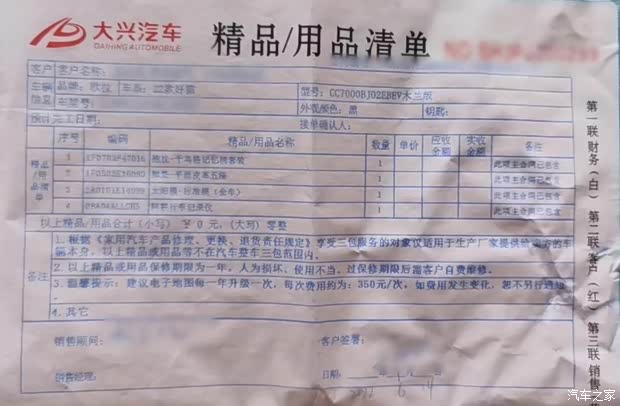 大兴汽车
DAIHING AUTOMOBILE
精品/用品清单
客户 客户名称:
车辆信息 品牌: 欧拉 车系: 22款好猫 型号: CC7000BJ02EBEV木兰版
车架号: 外观颜色: 黑 钥匙:
预计完工日期: 接单确认人:
精品/用品清单 序号 编码 精品/用品名称 数量 单价 应收金额 实收金额 备注
1 1 此项主合同已包含
2 1 此项主合同已包含
3 太阳膜- (全车) 1 此项主合同已包含
4 行车记录仪 1 此项主合同已包含
以上精品/用品合计(小写) 0元,(大写) 零整
备注
1.根据《家用汽车产品修理、更换、退货责任规定》享受三包服务的对象仅适用于生产厂家提供给卖方的车
辆本身,以上精品或用品等不在汽车整车三包范围内。
2.以上精品或用品保修期限为一年,人为损坏、使用不当、过保修期限后需客户自费维修。
3.温馨提示:建议电子地图每年升级一次,每次费用约为:350元/次,如费用发生变化,恕不另行通知
4.其它
销售顾问: 客户签署:
销售经理: 日期: 年 月
第一联财务(白) 第二联客户(红) 第三联销售
汽车之家